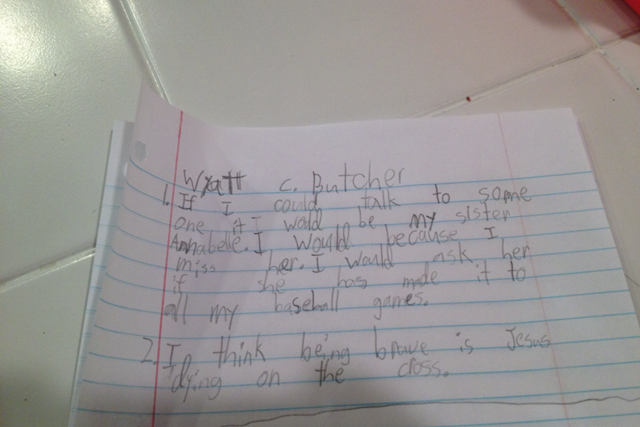 Wyatt C. Butcher
1. If I could talk to some
one it I wolld be my sister
Annabelle. I would because I
miss her. I would ask her
if she has made it to
all my baseball games.
2. I think being brave is Jesus
dying on the cross.